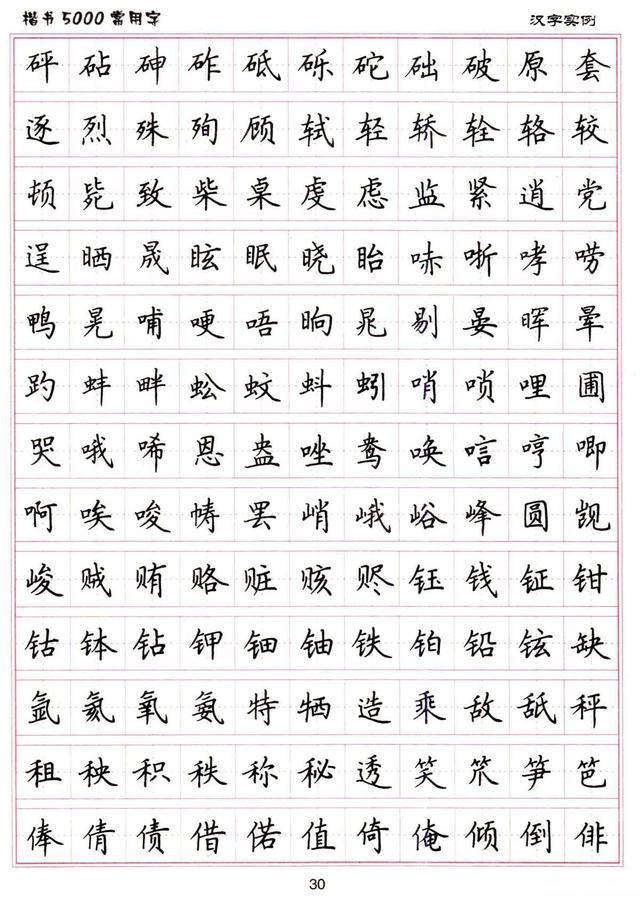 楷书5000常用字 汉字实例
砰 砧 砷 砟 砥 砾 砣 础 破 原 套
逐 烈 殊 殉 顾 轼 轻 轿 轾 辂 较
顿 毙 致 柴 桌 虔 虑 监 紧 逍 党
逞 晒 晟 眩 眠 晓 眙 哧 哳 哮 唠
鸭 晃 哺 哽 唔 晌 晁 剔 晏 晖 晕
趵 蚌 畔 蚣 蚊 蚪 蚓 哨 唢 哩 圃
哭 哦 唏 恩 盎 唑 鸯 唤 唁 哼 唧
啊 唉 唆 帱 罢 峭 峨 峪 峰 圆 觊
峻 贼 贿 赂 赃 赅 赆 钰 钱 钲 钳
钴 钵 钻 钾 钿 铀 铁 铂 铅 铉 缺
氩 氦 氧 氨 特 牺 造 乘 敌 舐 秤
租 秧 积 秩 称 秘 透 笑 笊 笋 笆
俸 倩 债 借 偌 值 倚 俺 倾 倒 俳
30